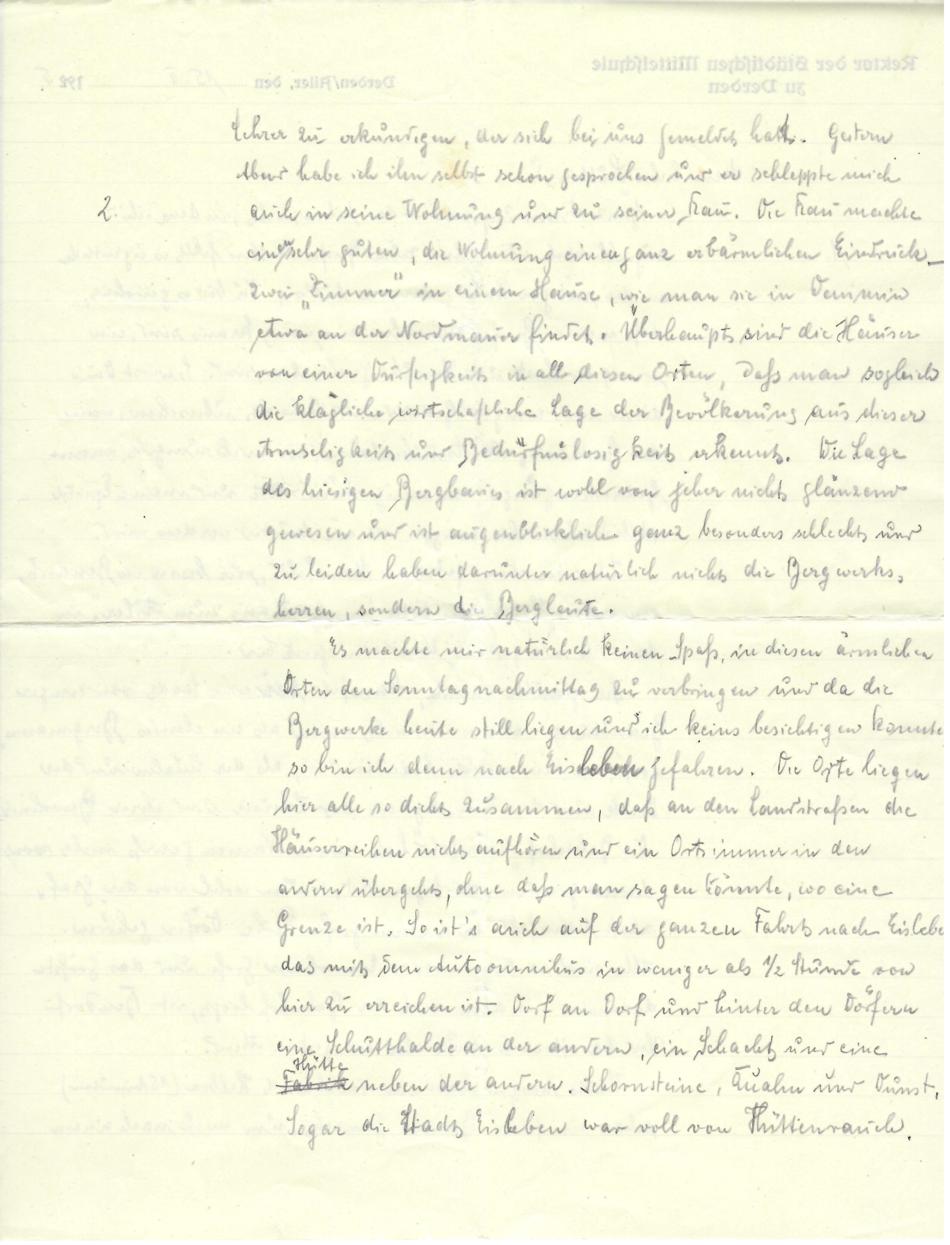 Rektor der Städtischen Mittelschule
zu Verden
Verden/Aller, den 192
Lehrer zu erkundigen, der sich bei uns gemeldet hat. Gestern
Abend habe ich ihn selbst schon gesprochen und er schleppte mich
2. auch in seine Wohnung und zu seiner Frau. Die Frau machte
einen sehr guten, die Wohnung einen ganz erbärmlichen Eindruck –
zwei „Zimmer“ in einem Hause, wie man sie in Demmin
etwa an der Nordmauer findet. Überhaupt sind die Häuser
von einer Dürftigkeit in all diesen Orten, daß man sogleich
die klägliche wirtschaftliche Lage der Bevölkerung aus dieser
Armseligkeit und Bedürfnislosigkeit erkennt. Die Lage
des hiesigen Bergbaues ist wohl von jeher nicht glänzend
gewesen und ist augenblicklich ganz besonders schlecht und
zu leiden haben darunter natürlich nicht die Bergwerks-
herren, sondern die Bergleute.
Es machte mir natürlich keinen Spaß, in diesen ärmlichen
Orten den Sonntagnachmittag zu verbringen und da die
Bergwerke heute still liegen und ich keins besichtigen konnte
so bin ich denn nach Eisleben gefahren. Die Orte liegen
hier alle so dicht zusammen, daß an den Landstraßen die
Häuserreihen nicht aufhören und ein Ort immer in den
andern übergeht, ohne daß man sagen könnte, wo eine
Grenze ist. So ist's auch auf der ganzen Fahrt nach Eislebe
das mit dem Autoomnibus in weniger als 1/2 Stunde von
hier zu erreichen ist. Dorf an Dorf und hinter den Dörfern
eine Schutthalde an der andern, ein Schacht und eine
Hütte
Fabrik neben der andern. Schornsteine, Qualm und Dunst.
Sogar die Stadt Eisleben war voll von Hüttenrauch.